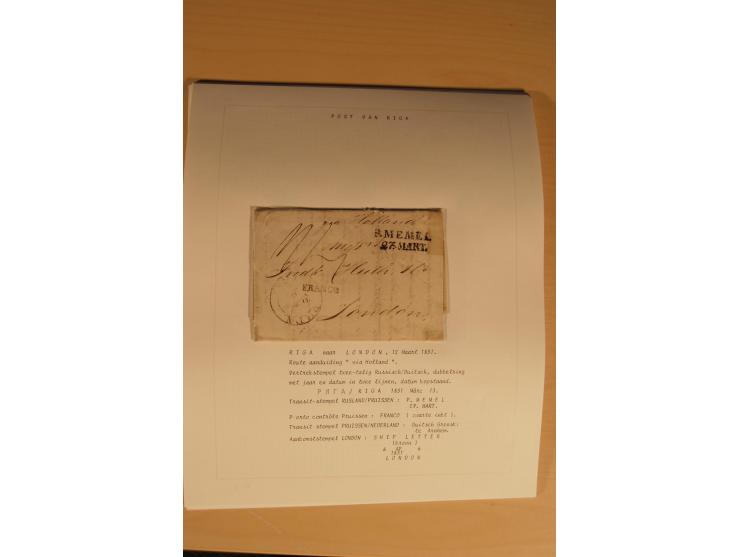 POST VAN RIGA
via Holland
P. MEMEL
27. MART.
Fredk Huth & Co
FRANCO
London.
RIGA naar LONDON, 12 Maart 1831.
Route aanduiding " via Holland ".
Vertrekstempel twee-talig Russisch/Duitsch, dubbelring
met jaar en datum in twee lijnen, datum kopstaand.
RIGA 1831 März 13.
Transit-stempel RUSLAND/PRUISSEN : P. MEMEL
27. MART.
P orto controle Pruissen : FRANCO ( zwarte inkt ).
Transit stempel PRUISSEN/NEDERLAND : Duitsch Grensk:
te Arnhem.
Aankomststempel LONDON : SHIP LETTER
( kroon )
6 AP 6
1831
LONDON